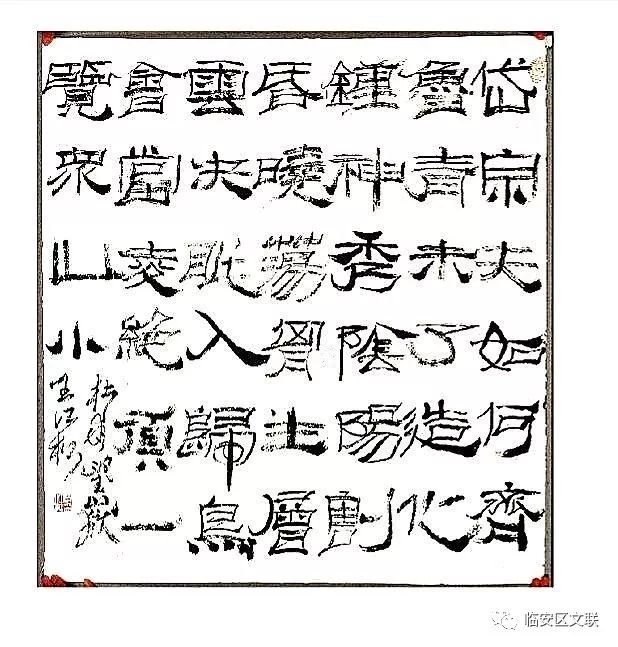 岱宗夫如何齊
魯青未了造化
鍾神秀陰陽割
昏曉蕩胷生層
雲決眦入歸鳥
會當凌絕頂一
覽眾山小
杜甫望嶽
临安区文联